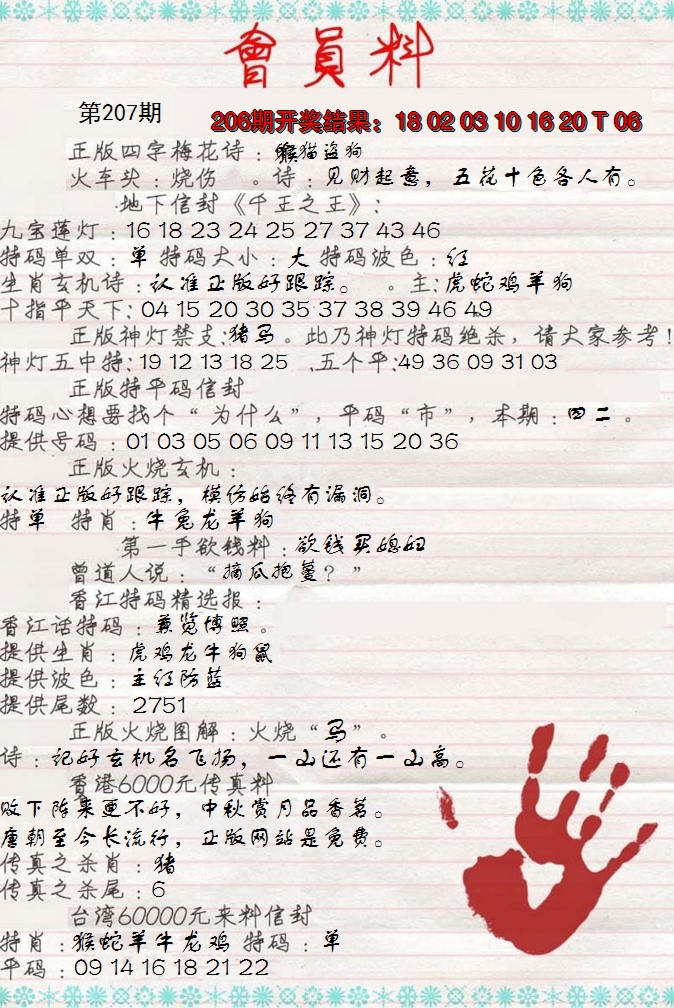 會員料
第207期
206期开奖结果：18 02 03 10 16 20 T 06
正版四字梅花诗：猴猫盗狗
火车头：烧伤 。诗：见财起意，五花十色各人有。
地下信封《千王之王》：
九宝莲灯：16 18 23 24 25 27 37 43 46
特码单双：单 特码大小：大 特码波色：红
生肖玄机诗：认准正版好跟踪。 。主：虎蛇鸡羊狗
十指平天下：04 15 20 30 35 37 38 39 46 49
正版神灯禁支：猪马。此乃神灯特码绝杀，请大家参考！
神灯五中特：19 12 13 18 25 .五个平：49 36 09 31 03
正版特平码信封
特码心想要找个“为什么”，平码“市”，本期：四二。
提供号码：01 03 05 06 09 11 13 15 20 36
正版火烧玄机：
认准正版好跟踪，模仿始终有漏洞。
特单 特肖：牛兔龙羊狗
第一手欲钱料：欲钱买媳妇
曾道人说：“摘瓜抱蔓？”
香江特码精选报：
香江话特码：兼览博照。
提供生肖：虎鸡龙牛狗鼠
提供波色：主红防蓝
提供尾数：2751
正版火烧图解：火烧“马”。
诗：记好玄机名飞扬，一山还有一山高。
香港6000元传真料
败下阵来更不好，中秋赏月品香茗。
唐朝至今长流行，正版网站是免费。
传真之杀肖：猪
传真之杀尾：6
台湾60000元来料信封
特肖：猴蛇羊牛龙鸡 特码：单
平码：09 14 16 18 21 22